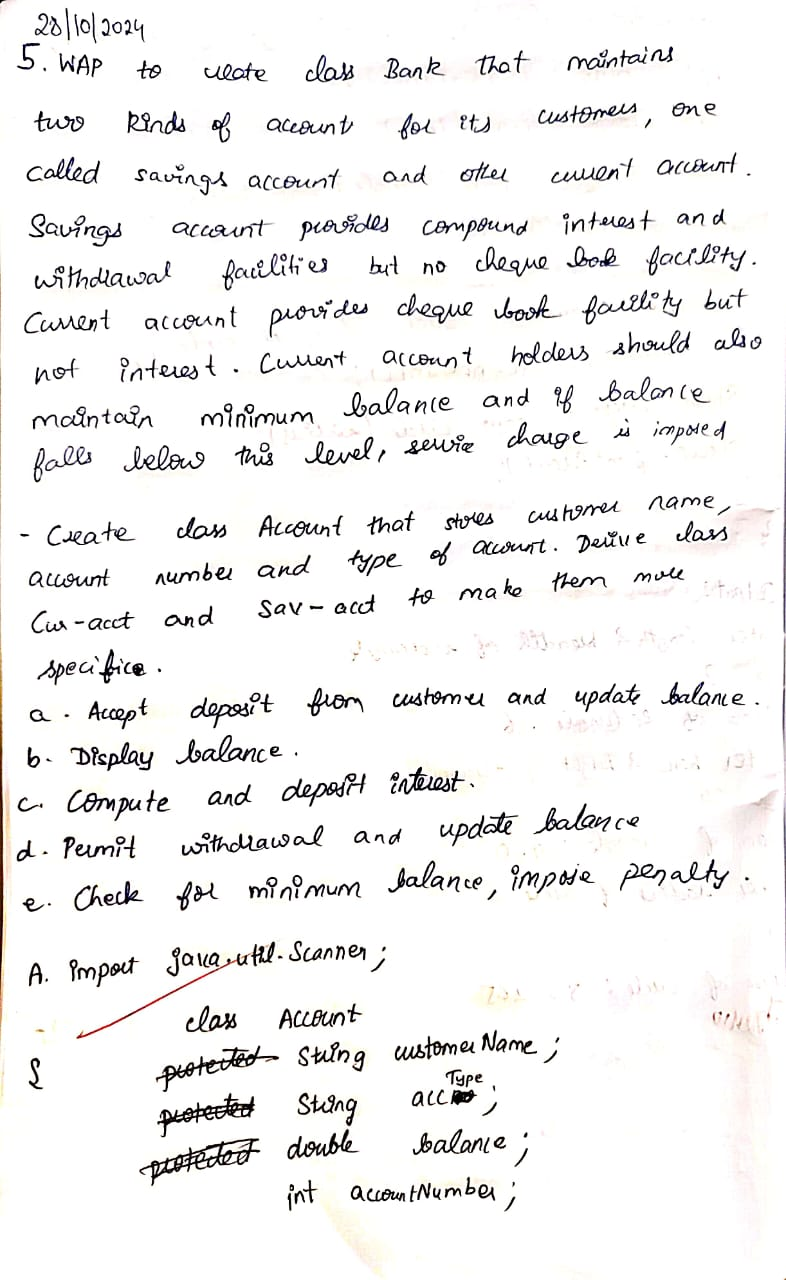 28/10/2024
5. WAP to create class Bank that maintains
two kinds of account for its customers, one
called savings account and other current account.
Savings account provides compound interest and
withdrawal facilities but no cheque book facility.
Current account provides cheque book facility but
not interest. Current account holders should also
maintain minimum balance and if balance
falls below this level, service charge is imposed
- Create class Account that stores customer name,
account number and type of account. Derive class
Cur-acct and Sav-acct to make them more
specifice.
a. Accept deposit from customer and update balance.
b. Display balance.
c. Compute and deposit interest.
d. Permit withdrawal and update balance
e. Check for minimum balance, impose penalty.
A. import java.util.Scanner;
class Account
{
protected String customerName;
protected String accType;
protected double balance;
int accountNumber;